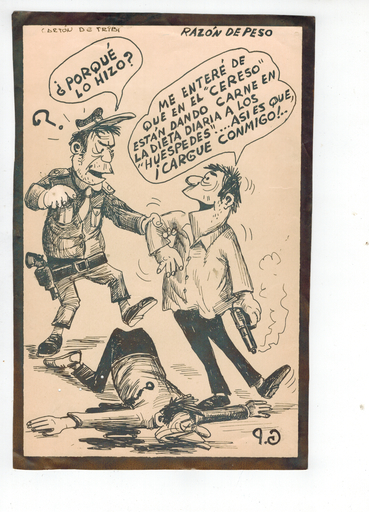 CARTÓN DE TRIBI
RAZÓN DE PESO
¿PORQUÉ
LO HIZO?
ME ENTERÉ DE
QUE EN EL "CERESO"
ESTÁN DANDO CARNE EN
LA DIETA DIARIA A LOS
"HUÉSPEDES"... ASI ES QUE,
¡CARGUE CONMIGO!..
?